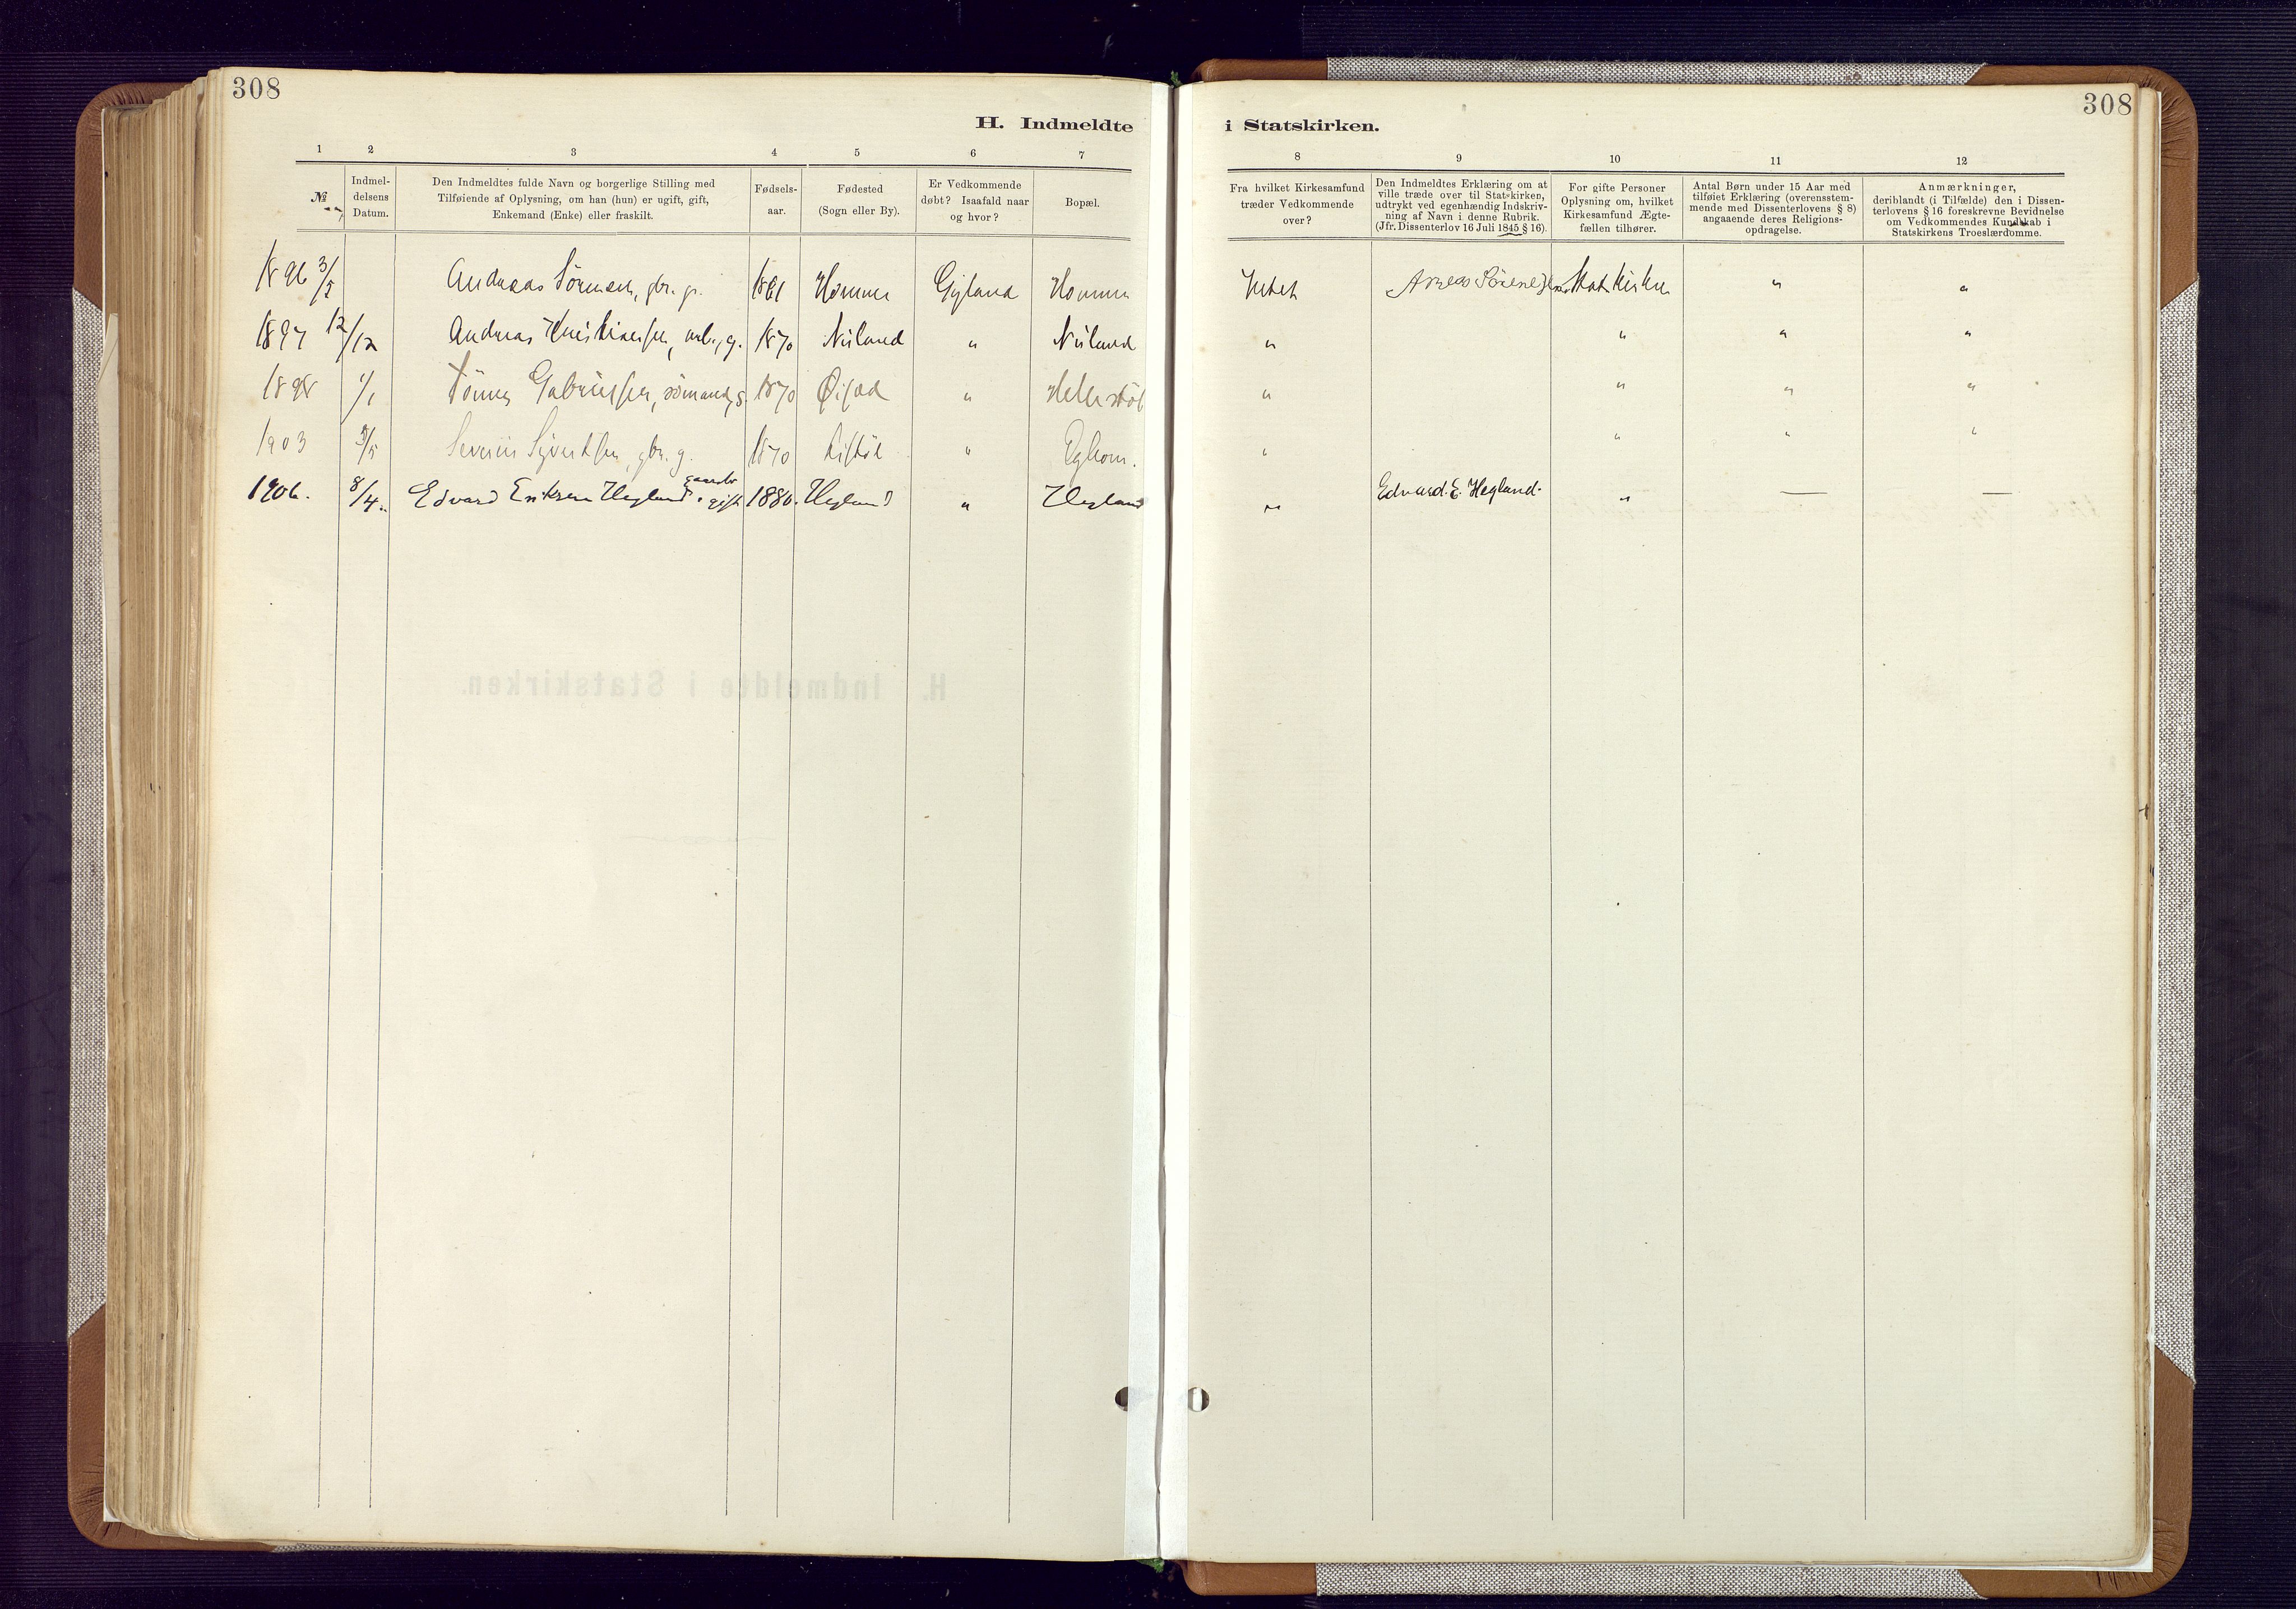 308
308
H. Indmeldte i Statskirken.
1 2 3 4 5 6 7 8 9 10 11 12
№
Indmel-
delsens
Datum.
Den Indmeldtes fulde Navn og borgerlige Stilling med
Tilføiende af Oplysning, om han (hun) er ugift, gift,
Enkemand (Enke) eller fraskilt.
Fødsels-
aar.
Fødested
(Sogn eller By).
Er Vedkommende
døbt? Isaafald naar
og hvor?
Bopæl.
Fra hvilket Kirkesamfund
træder Vedkommende
over?
Den Indmeldtes Erklæring om at
ville træde over til Statskirken,
udtrykt ved egenhændig Indskriv-
ning af Navn i denne Rubrik.
(Jfr. Dissenterlov 16 Juli 1845 § 16).
For gifte Personer
Oplysning om, hvilket
Kirkesamfund Ægte-
fællen tilhører.
Antal Børn under 15 Aar med
tilføiet Erklæring (overensstem-
mende med Dissenterlovens § 8)
angaaende deres Religions-
opdragelse.
Anmærkninger,
deriblandt (i Tilfælde) den i Dissen-
terlovens § 16 foreskrevne Bevidnelse
om Vedkommendes Kundskab i
Statskirkens Troeslærdomme.
1896 3/5 Andreas Sörensen, gbr. g. 1861 Homme Gyland Homme Intet Statskirken " "
1897 12/12 Andreas Kristiansen, arb., g. 1870 Niland " Niland " " " "
1898 1/1 Tönnes Gabrielsen, sömand, g. 1870 Øifæd " " " " "
1903 Severin Sivertsen, gbr. g. 1870 " " " " "
1906. 8/4. Edvard Eriksen Hegland, gaardbr. gift 1880. Hegland " Hegland " Edvard. E. Hegland. " — —